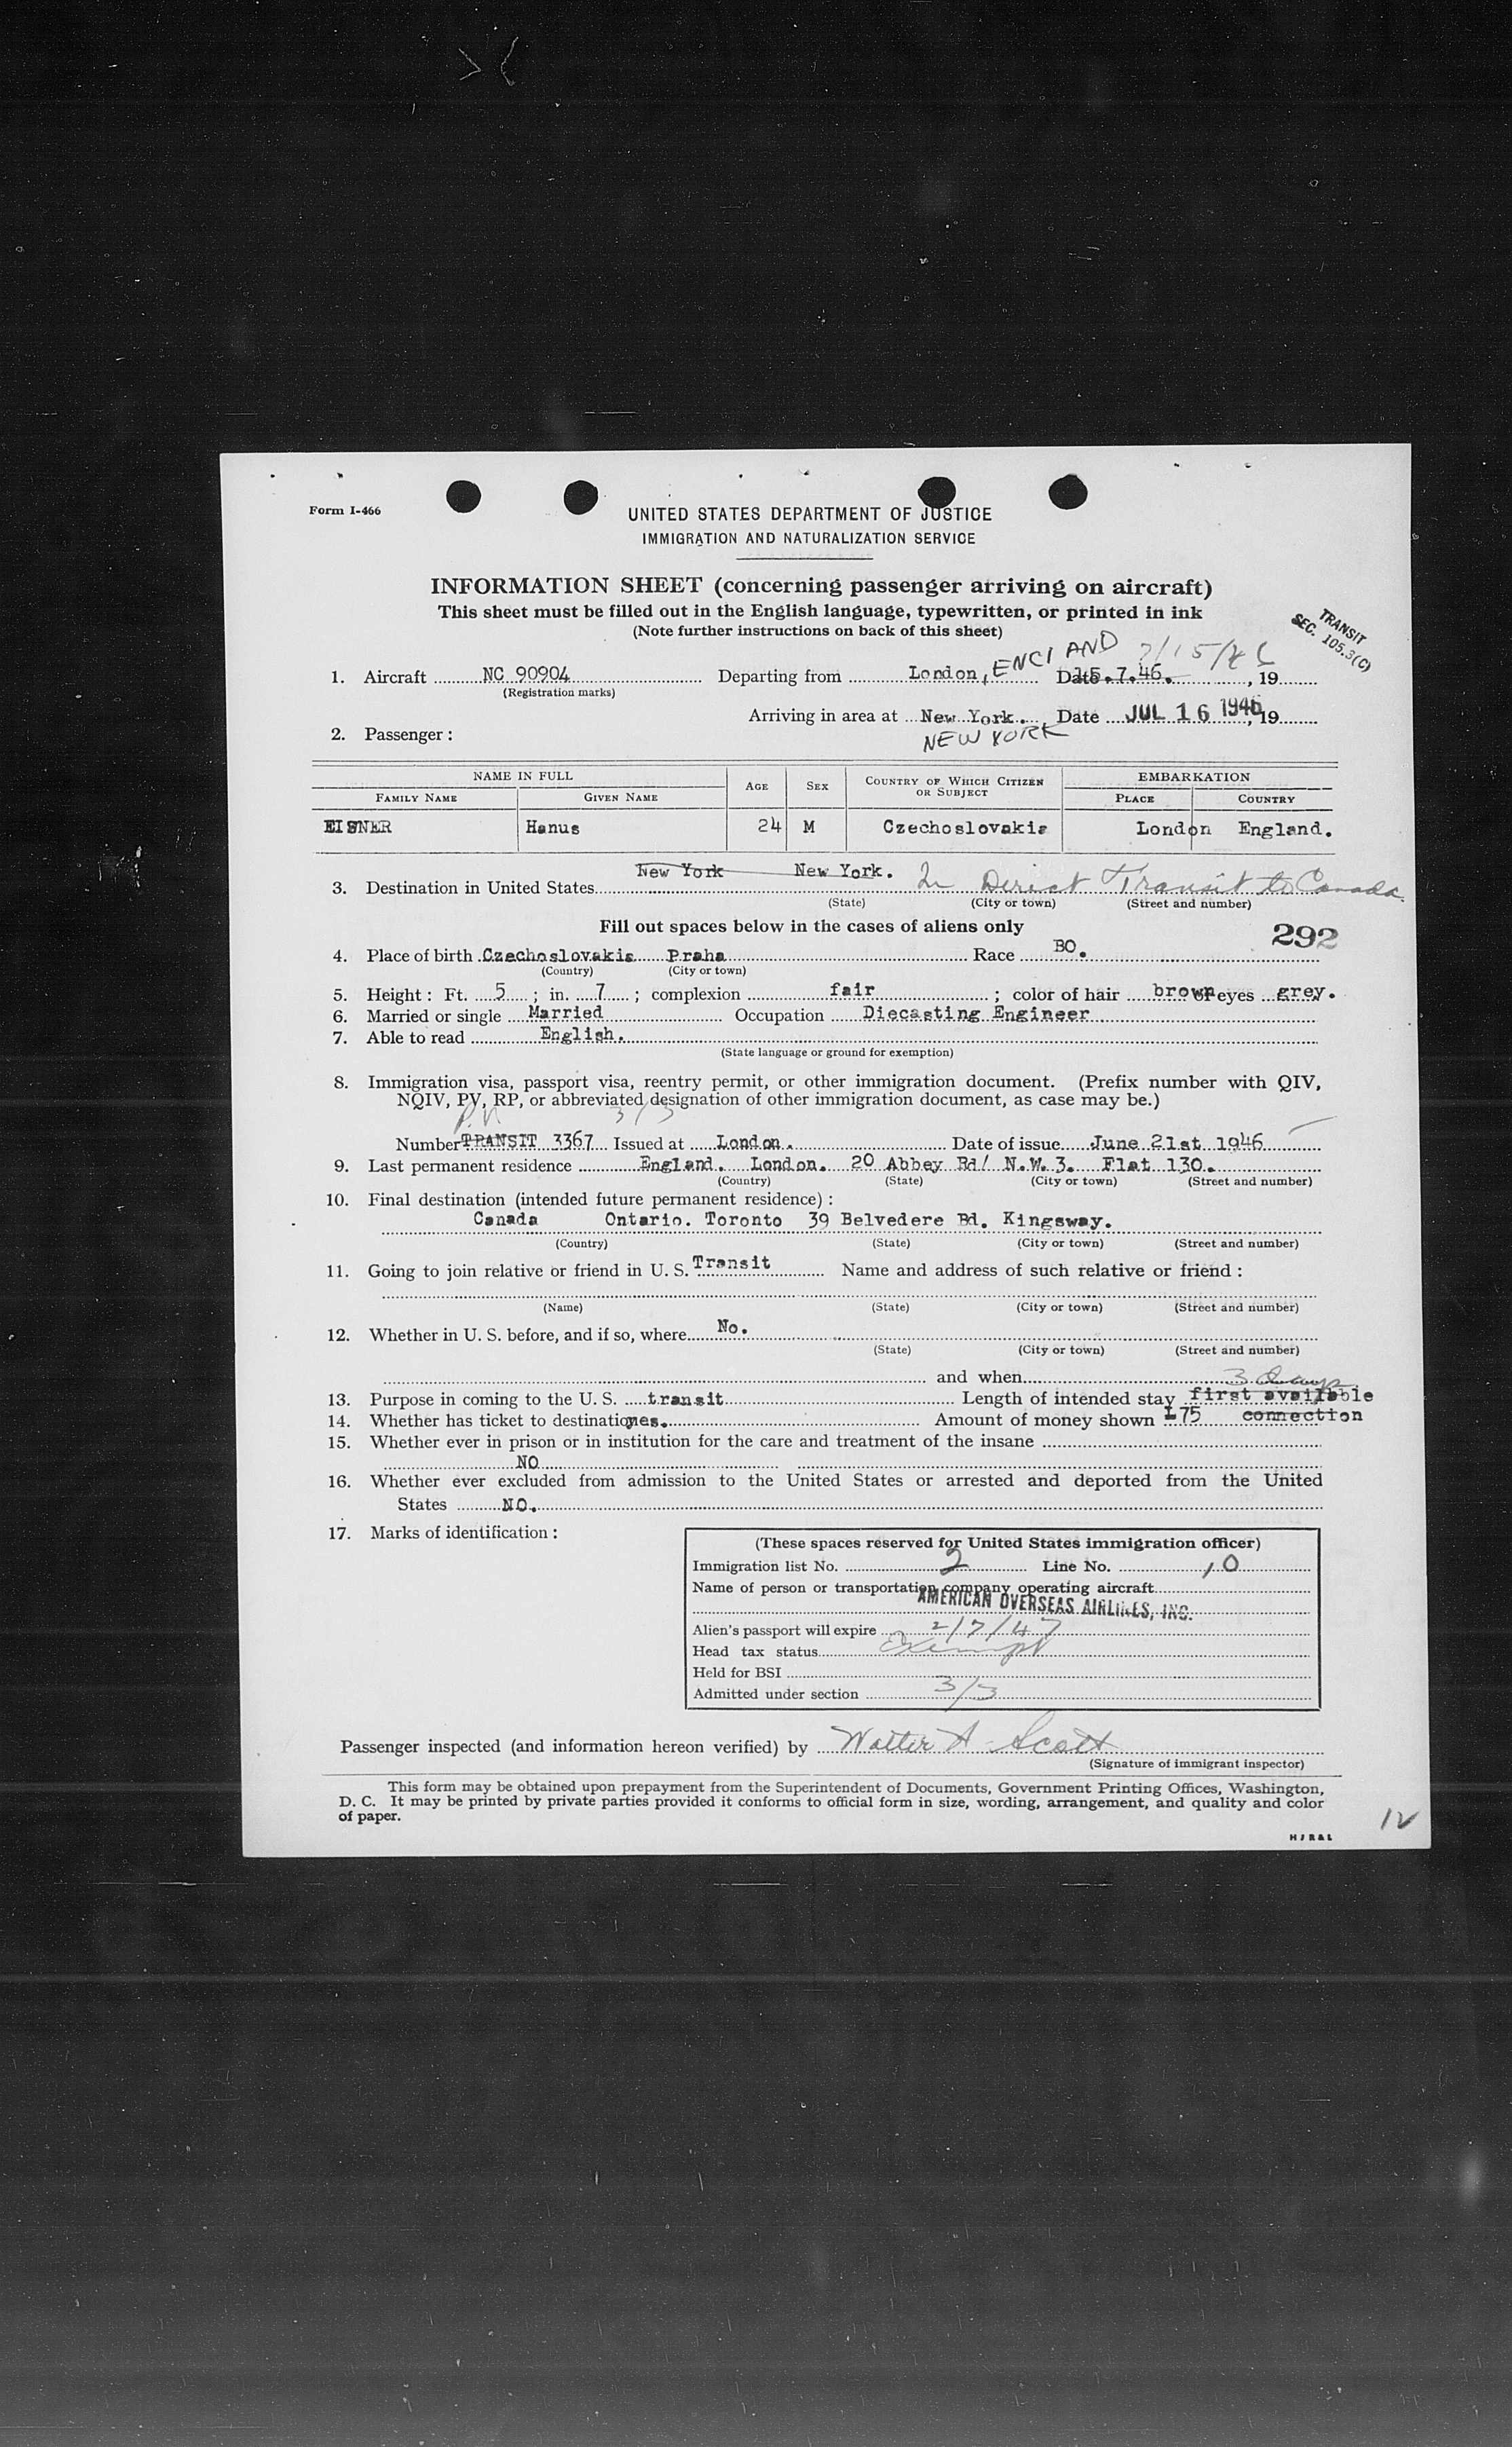 Form I-466
UNITED STATES DEPARTMENT OF JUSTICE
IMMIGRATION AND NATURALIZATION SERVICE
INFORMATION SHEET (concerning passenger arriving on aircraft)
This sheet must be filled out in the English language, typewritten, or printed in ink
(Note further instructions on back of this sheet)
TRANSIT
SEC. 105.3(C)
7/15/46
1. Aircraft NC 90904 Departing from London, ENGLAND Date 15.7.46. , 19
(Registration marks)
Arriving in area at New York. Date JUL 16 1946, 19
NEW YORK
2. Passenger:
NAME IN FULL AGE SEX COUNTRY OF WHICH CITIZEN OR SUBJECT EMBARKATION
FAMILY NAME GIVEN NAME PLACE COUNTRY
EISNER Hanus 24 M Czechoslovakia London England.
3. Destination in United States New York New York. In Direct Transit to Canada
(State) (City or town) (Street and number)
Fill out spaces below in the cases of aliens only
292
4. Place of birth Czechoslovakia Praha Race BO.
(Country) (City or town)
5. Height: Ft. 5 ; in. 7 ; complexion fair ; color of hair brown eyes grey.
6. Married or single Married Occupation Diecasting Engineer
7. Able to read English.
(State language or ground for exemption)
8. Immigration visa, passport visa, reentry permit, or other immigration document. (Prefix number with QIV,
NQIV, PV, RP, or abbreviated designation of other immigration document, as case may be.)
P.V. 3/3
Number TRANSIT 3367 Issued at London. Date of issue June 21st 1946
9. Last permanent residence England. London. 20 Abbey Rd/ N.W.3. Flat 130.
(Country) (State) (City or town) (Street and number)
10. Final destination (intended future permanent residence):
Canada Ontario. Toronto 39 Belvedere Bd. Kingsway.
(Country) (State) (City or town) (Street and number)
11. Going to join relative or friend in U. S. Transit Name and address of such relative or friend:
(Name) (State) (City or town) (Street and number)
12. Whether in U. S. before, and if so, where No.
(State) (City or town) (Street and number)
and when
3 Days
13. Purpose in coming to the U. S. transit Length of intended stay first available
connection
14. Whether has ticket to destination yes. Amount of money shown £75
15. Whether ever in prison or in institution for the care and treatment of the insane
NO
16. Whether ever excluded from admission to the United States or arrested and deported from the United
States NO.
17. Marks of identification:
(These spaces reserved for United States immigration officer)
Immigration list No. 2 Line No. 10
Name of person or transportation company operating aircraft
AMERICAN OVERSEAS AIRLINES, INC.
Alien's passport will expire 2/7/47
Head tax status Exempt
Held for BSI
Admitted under section 3/3
Passenger inspected (and information hereon verified) by Walter A Scott
(Signature of immigrant inspector)
This form may be obtained upon prepayment from the Superintendent of Documents, Government Printing Offices, Washington,
D. C. It may be printed by private parties provided it conforms to official form in size, wording, arrangement, and quality and color
of paper.
H J R & L